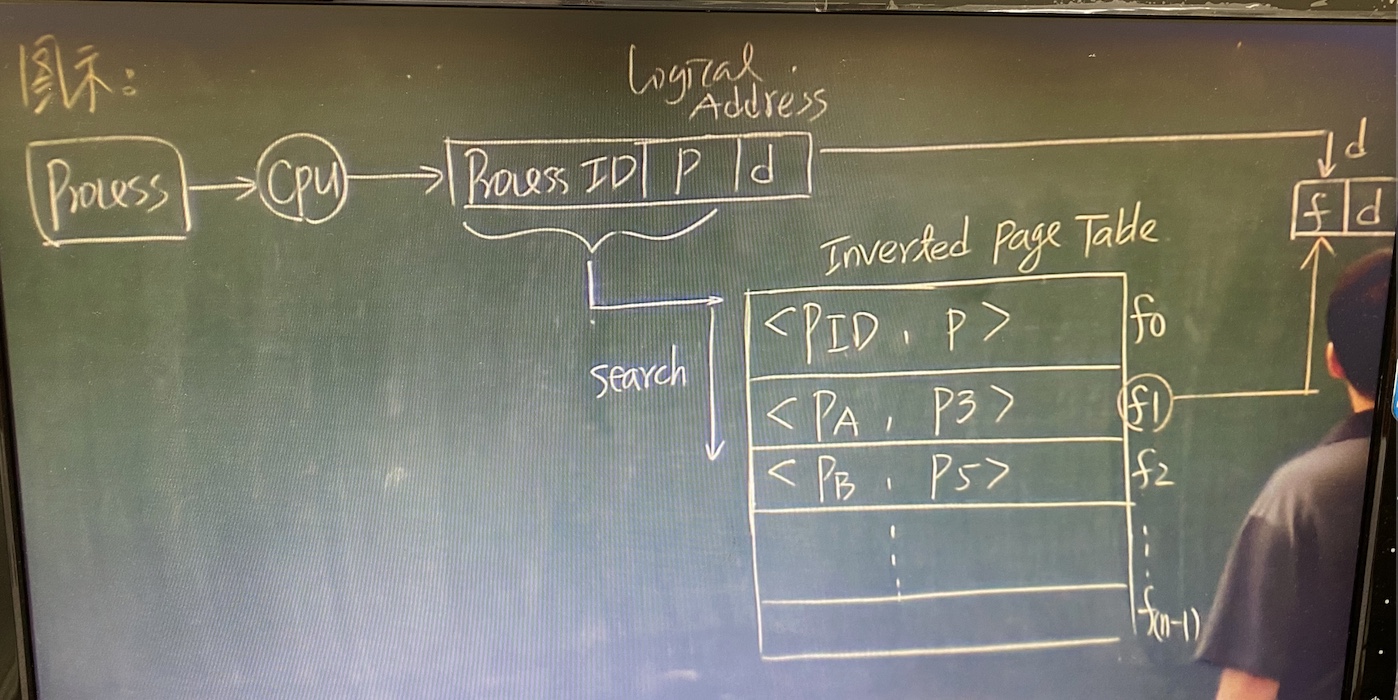 图示:
Logical
Address
Process
CPU
Process ID p d
d
f d
Inverted Page Table
<PID, P> f0
search
<PA, P3> f1
<PB, P5> f2
f(n-1)